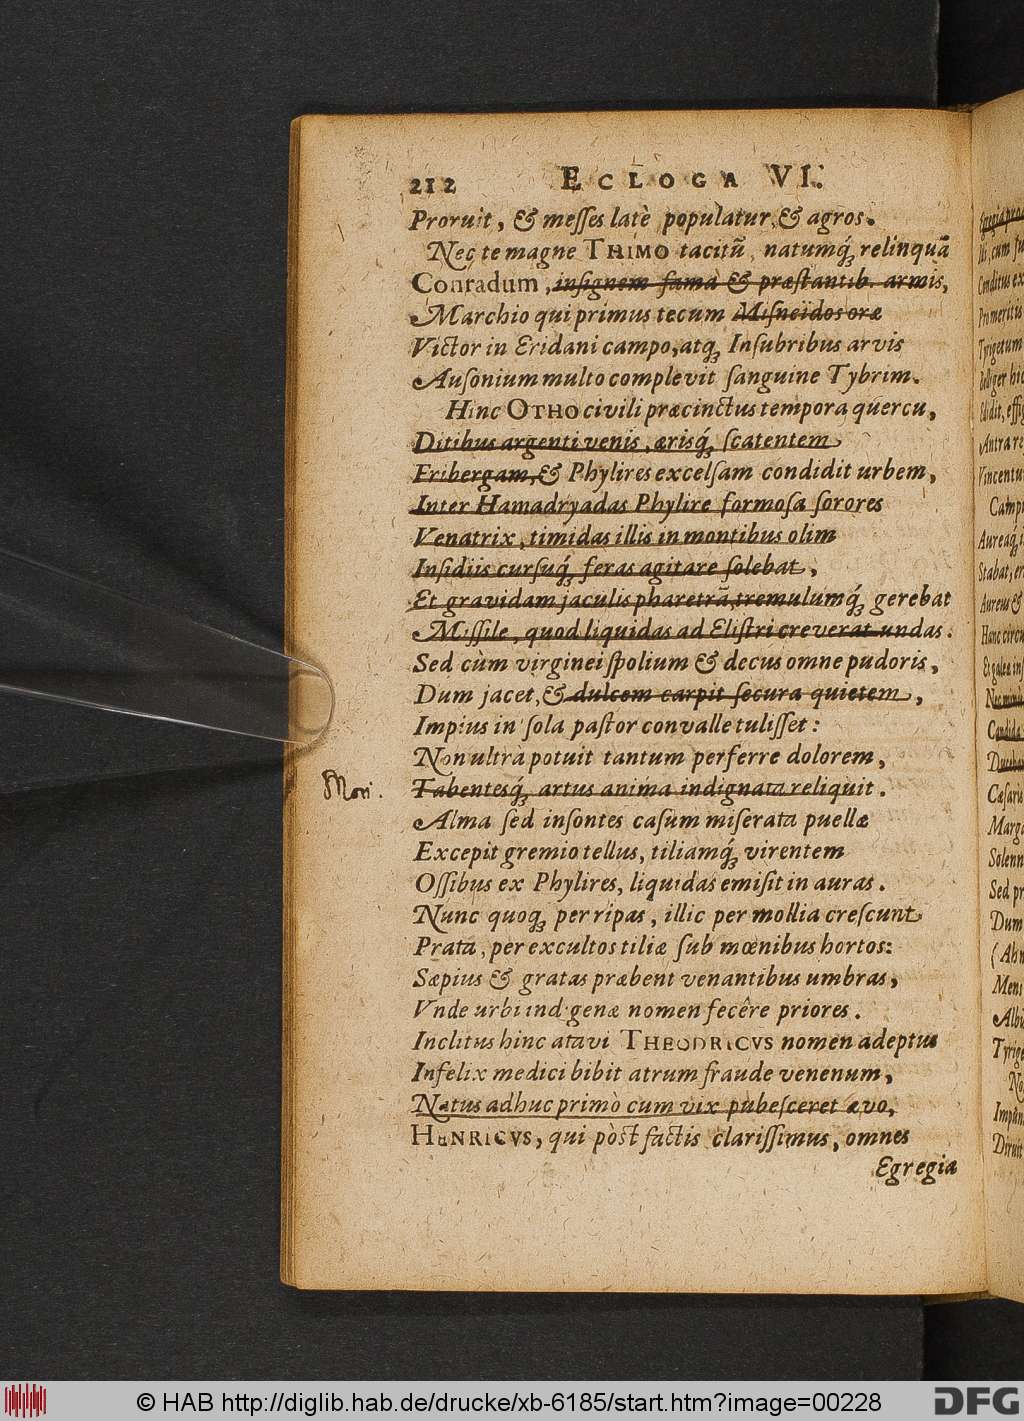 212 ECLOGA VI.
Proruit, & messes latè populatur, & agros.
Nec te magne THIMO tacitũ, natumq́; relinquã
Conradum, insignem fama & præstantib. armis,
Marchio qui primus tecum Misneidos oræ
Victor in Eridani campo, atq; Insubribus arvis
Ausonium multo complevit sanguine Tybrim.
Hinc OTHO civili præcinctus tempora quercu,
Ditibus argenti venis, ærisq́; scatentem
Fribergam, & Phylires excelsam condidit urbem,
Inter Hamadryadas Phylire formosa sorores
Venatrix, timidas illis in montibus olim
Insidiis cursuq́; feras agitare solebat,
Et gravidam jaculis pharetrã, tremulumq́; gerebat
Missile, quod liquidas ad Elistri creverat undas.
Sed cùm virginei spolium & decus omne pudoris,
Dum jacet, & dulcem carpit secura quietem,
Impius in sola pastor convalle tulisset:
Non ultrà potuit tantum perferre dolorem,
Mori. Tabentesq́; artus anima indignata reliquit.
Alma sed insontes casum miserata puellæ
Excepit gremio tellus, tiliamq́; virentem
Ossibus ex Phylires, liquidas emisit in auras.
Nunc quoq; per ripas, illic per mollia crescunt
Prata, per excultos tiliæ sub mœnibus hortos:
Sæpius & gratas præbent venantibus umbras,
Vnde urbi indigenæ nomen fecêre priores.
Inclitus hinc atavi THEODRICVS nomen adeptus
Infelix medici bibit atrum fraude venenum,
Natus adhuc primò cum vix pubesceret ævo,
HENRICVS, qui pòst factis clarissimus, omnes
Egregia
© HAB http://diglib.hab.de/drucke/xb-6185/start.htm?image=00228
DFG